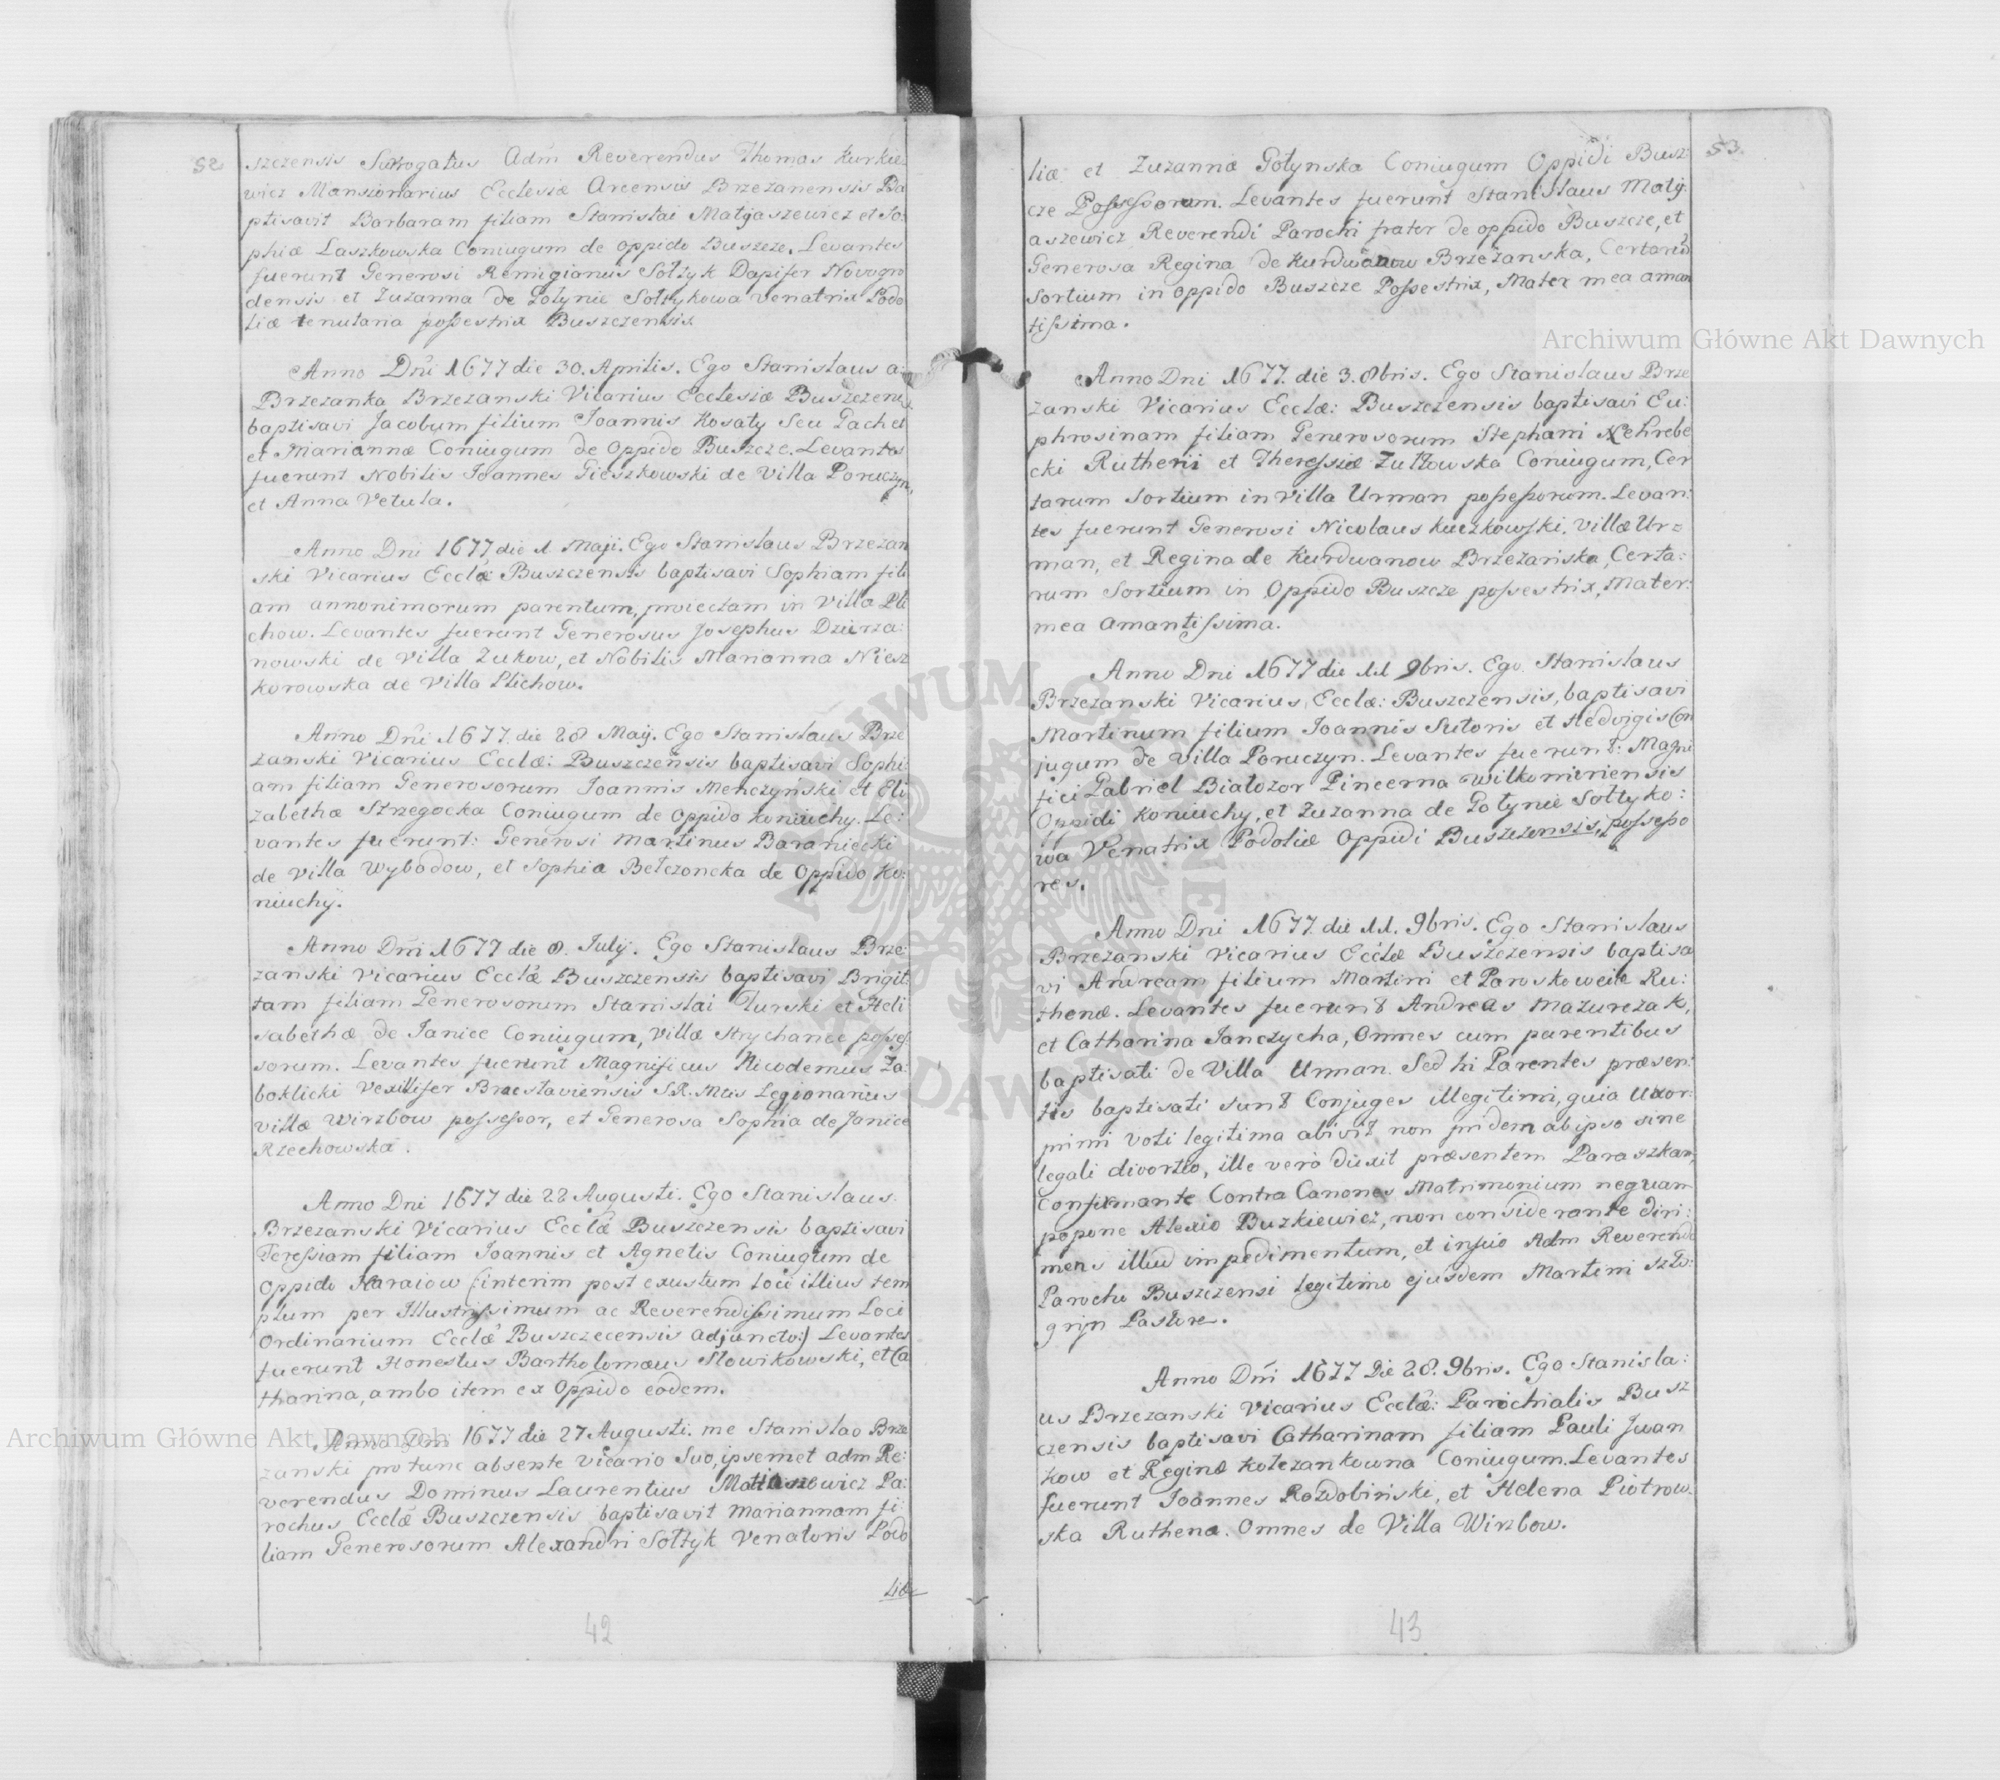 52
szczensis Surrogatus Adm Reverendus Thomas Kurkie-
wicz Mansionarius Ecclesiæ Arcensis Brzezanensis Ba
ptisavit Barbaram filiam Stanislai Matyaszewicz et So:
phiæ Laszkowska Coniugum de oppido Buszcze. Levantes
fuerunt Generosi Remigianus Sołtyk Dapifer Novogro
densis et Zuzanna de Gołynie Sołtykowa Venatrix Podo
liæ tenutaria possestrix Buszczensis
Anno Dni 1677 die 30. Aprilis. Ego Stanislaus a:
Brzezanka Brzezanski Vicarius Ecclesiæ Buszczens.
baptisavi Jacobum filium Joannis Kosaty Seu Pachet
et Mariannæ Coniugum de Oppido Buszcze. Levantes
fuerunt Nobilis Joannes Gieszkowski de Villa Poruczyn,
et Anna Vetula.
Anno Dni 1677 die 1 Maji. Ego Stanislaus Brzezan
ski Vicarius Ecclæ Buszczensis baptisavi Sophiam fili
am annonimorum parentum, proiectam in Villa Pli
chow. Levantes fuerunt Generosus Josephus Dzierza:
nowski de Villa Zukow, et Nobilis Marianna Niesz
korowska de Villa Plichow.
Anno Dni 1677 die 28 Maij. Ego Stanislaus Brze
zanski Vicarius Ecclæ: Buszczensis baptisavi Sophi:
am filiam Generosorum Joannis Menczynski et Eli
zabethæ Strzegocka Coniugum de Oppido Koniuchy. Le:
vantes fuerunt: Generosi Martinus Baraniecki
de Villa Wybodow, et Sophia Bełczoncka de Oppido Ko:
niuchy.
Anno Dni 1677 die 8. July. Ego Stanislaus Brze:
zanski Vicarius Ecclæ Buszczensis baptisavi Brigit
tam filiam Generosorum Stanislai Turski et Heli
sabethæ de Janice Coniugum, Villæ Strychance posses
sorum. Levantes fuerunt Magnificus Nicodemus Za:
boklicki Vexillifer Bracslaviensis S.R. Mtis Legionarius
villæ Wirzbow possessor, et Generosa Sophia de Janice
Rzechowska.
Anno Dni 1677 die 22 Augusti. Ego Stanislaus
Brzezanski Vicarius Ecclæ Buszczensis baptisavi
Teressiam filiam Joannis et Agnetis Coniugum de
Oppido Naraiow (interim post exustum loci illius tem
plum per Illustrissimum ac Reverendissimum Loci
Ordinarium Ecclæ Buszczecensis adjuncto:) Levantes
fuerunt Honestus Bartholomæus Słowikowski, et Ca
tharina, ambo item ex Oppido eodem.
Anno Dni 1677 die 27 Augusti. me Stanislao Brze
zanski pro tunc absente Vicario Suo, ipsemet adm Re:
verendus Dominus Laurentius Matiaszewicz Pa:
rochus Ecclæ Buszczensis baptisavit Mariannam fi:
liam Generosorum Alexandri Sołtyk Venatoris Podo
liæ
42
53.
liæ et Zuzannæ Gołynska Coniugum Oppidi Busz:
cze Possessorum. Levantes fuerunt Stanislaus Maty:
aszewicz Reverendi Parochi frater de oppido Buszcze, et
Generosa Regina de Kurdwanow Brzezanska, Certarum
Sortium in oppido Buszcze Possestrix, Mater mea aman
tissima.
Anno Dni 1677. die 3. 8bris. Ego Stanislaus Brze
zanski Vicarius Ecclæ: Buszczensis baptisavi Eu:
phrosinam filiam Generosorum Stephani Nehrebe
cki Rutheni et Theressiæ Zułtowska Coniugum, Cer
tarum Sortium in villa Urman possessorum. Levan:
tes fuerunt Generosi Nicolaus Kuczkowski. villæ Ur=
man, et Regina de Kurdwanow Brzezanska, Certa:
rum Sortium in Oppido Buszcze possestrix, Mater:
mea Amantissima.
Anno Dni 1677 die 11 9bris. Ego Stanislaus
Brzezanski Vicarius Ecclæ: Buszczensis, baptisavi
Martinum filium Joannis Sutoris et Hedvigis Con
jugum de Villa Poruczyn. Levantes fuerunt: Magni
fici Gabriel Białozor Pincerna Wilkomiriensis
Oppidi Koniuchy, et Zuzanna de Gołynie Sołtyko:
wa Venatrix Podoliæ Oppidi Buszczensis, possesso
res.
Anno Dni 1677. die 11. 9bris. Ego Stanislaus
Brzezanski Vicarius Ecclæ Buszczensis baptisa
vi Andream filium Martini et Paroskoweiæ Ru:
thenæ. Levantes fuerunt Andreas Mazurczak,
et Catharina Janczycha, Omnes cum parentibus
baptisati de Villa Urman. Sed hi Parentes præsen:
tis baptisati sunt Conjuges illegitimi, quia Uxor
primi voti legitima abivit non pridem ab ipso sine
legali divortio, ille vero duxit præsentem Paraszkam,
Confirmante Contra Canones Matrimonium nequam
popone Alexio Buzkiewicz, non considerante diri:
mens illud impedimentum, et inscio Adm Reverendo
Parocho Buszczensi legitimo ejusdem Martini Szto:
gryn Pastore.
Anno Dni 1677 Die 28. 9bris. Ego Stanisla:
us Brzezanski Vicarius Ecclæ: Parochialis Busz
czensis baptisavi Catharinam filiam Pauli Jwan
kow et Reginæ Kolezankowna Coniugum. Levantes
fuerunt Joannes Rozdobinski, et Helena Piotrow-
ska Ruthena. Omnes de Villa Wirzbow.
43
Archiwum Główne Akt Dawnych
Archiwum Główne Akt Dawnych
ARCHIWUM GŁÓWNE AKT DAWNYCH